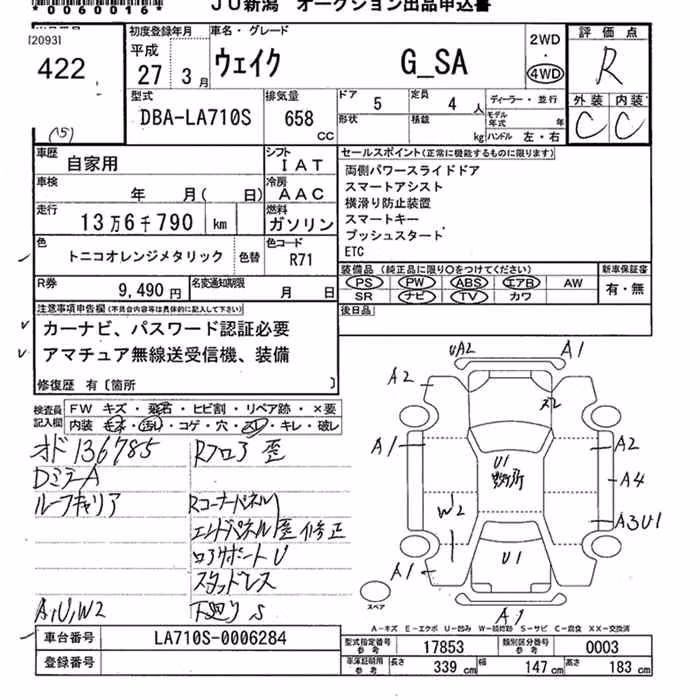 *0060016*
JU新潟 オークション出品申込書
[2093]
422
(15)
初度登録年月
平成
27年 3月
車名・グレード
ウェイク G_SA
2WD
・
4WD
評価点
R
外装 内装
C C
型式
DBA-LA710S
排気量
658 cc
ドア 5
形状
定員 4 人
積載 kg
ディーラー・並行
モデル年式 年
ハンドル 左・右
車歴 自家用
シフト IAT
車検 年 月( 日)
冷房 AAC
走行 13万6千790 km
燃料 ガソリン
色 トニコオレンジメタリック 色替
色コード R71
R券 9,490円
名変通知期限 月 日
セールスポイント(正常に機能するものに限ります)
両側パワースライドドア
スマートアシスト
横滑り防止装置
スマートキー
プッシュスタート
ETC
装備品(純正品に限り○をつけてください)
新車保証書
PS PW ABS エアB AW
SR ナビ TV カワ
有・無
後日品
注意事項申告欄(不具合内容等は具体的に記入して下さい)
カーナビ、パスワード認証必要
アマチュア無線送受信機、装備
修復歴 有〔箇所 〕
検査員記入欄
FW キズ・飛石・ヒビ割・リペア跡・×要
内装 汚れ・コゲ・穴・スレ・キレ・破レ
オド136785
Dミラー A
ルーフキャリア
A,U,W2
Rフロア 歪
Rコーナーパネル
エンドパネル歪修正
ロアサポートU
スタッドレス
下廻りS
UA2 A1
A2
A1 A2
U1
A4
W2
A3U1
A1
U1
A1
スペア
A-キズ E-エクボ U-凹み W-補修跡 S-サビ C-腐食 XX-交換済
車台番号 LA710S-0006284
登録番号
型式指定番号 参考 17853
類別区分番号 参考 0003
車庫証明用 参考
長さ 339 cm 幅 147 cm 高さ 183 cm